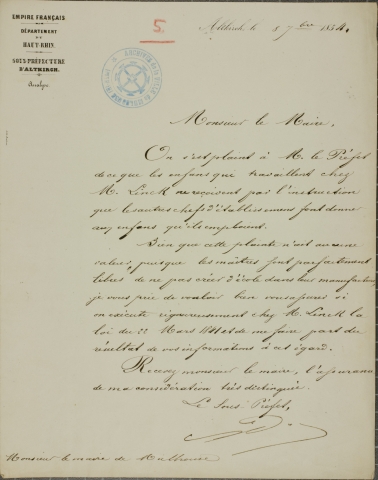 EMPIRE FRANÇAIS.
DÉPARTEMENT
DU
HAUT-RHIN.
SOUS-PRÉFECTURE
D'ALTKIRCH.
Analyse
5.
Altkirch, le 8 7bre 1854.
Monsieur le Maire,
On s'est plaint à M. le Préfet
de ce que les enfans que travaillent chez
M. Linck ne reçoivent pas l'instruction
que les autres chefs d'établissement font donner
aux enfans qu'ils emploient.
Bien que cette plainte n'est aucune
valeur, puisque les maîtres sont parfaitement
libres de ne pas créer d'école dans leur manufacture
je vous prie de vouloir bien vous assurer si
on exécute rigoureusement chez M. Linck la
loi du 22 Mars 1841 et de me faire part du
résultat de vos informations à cet égard.
Recevez monsieur le maire, l'assurance
de ma considération très distinguée.
Le Sous-Préfet,
Monsieur le maire de Mulhouse